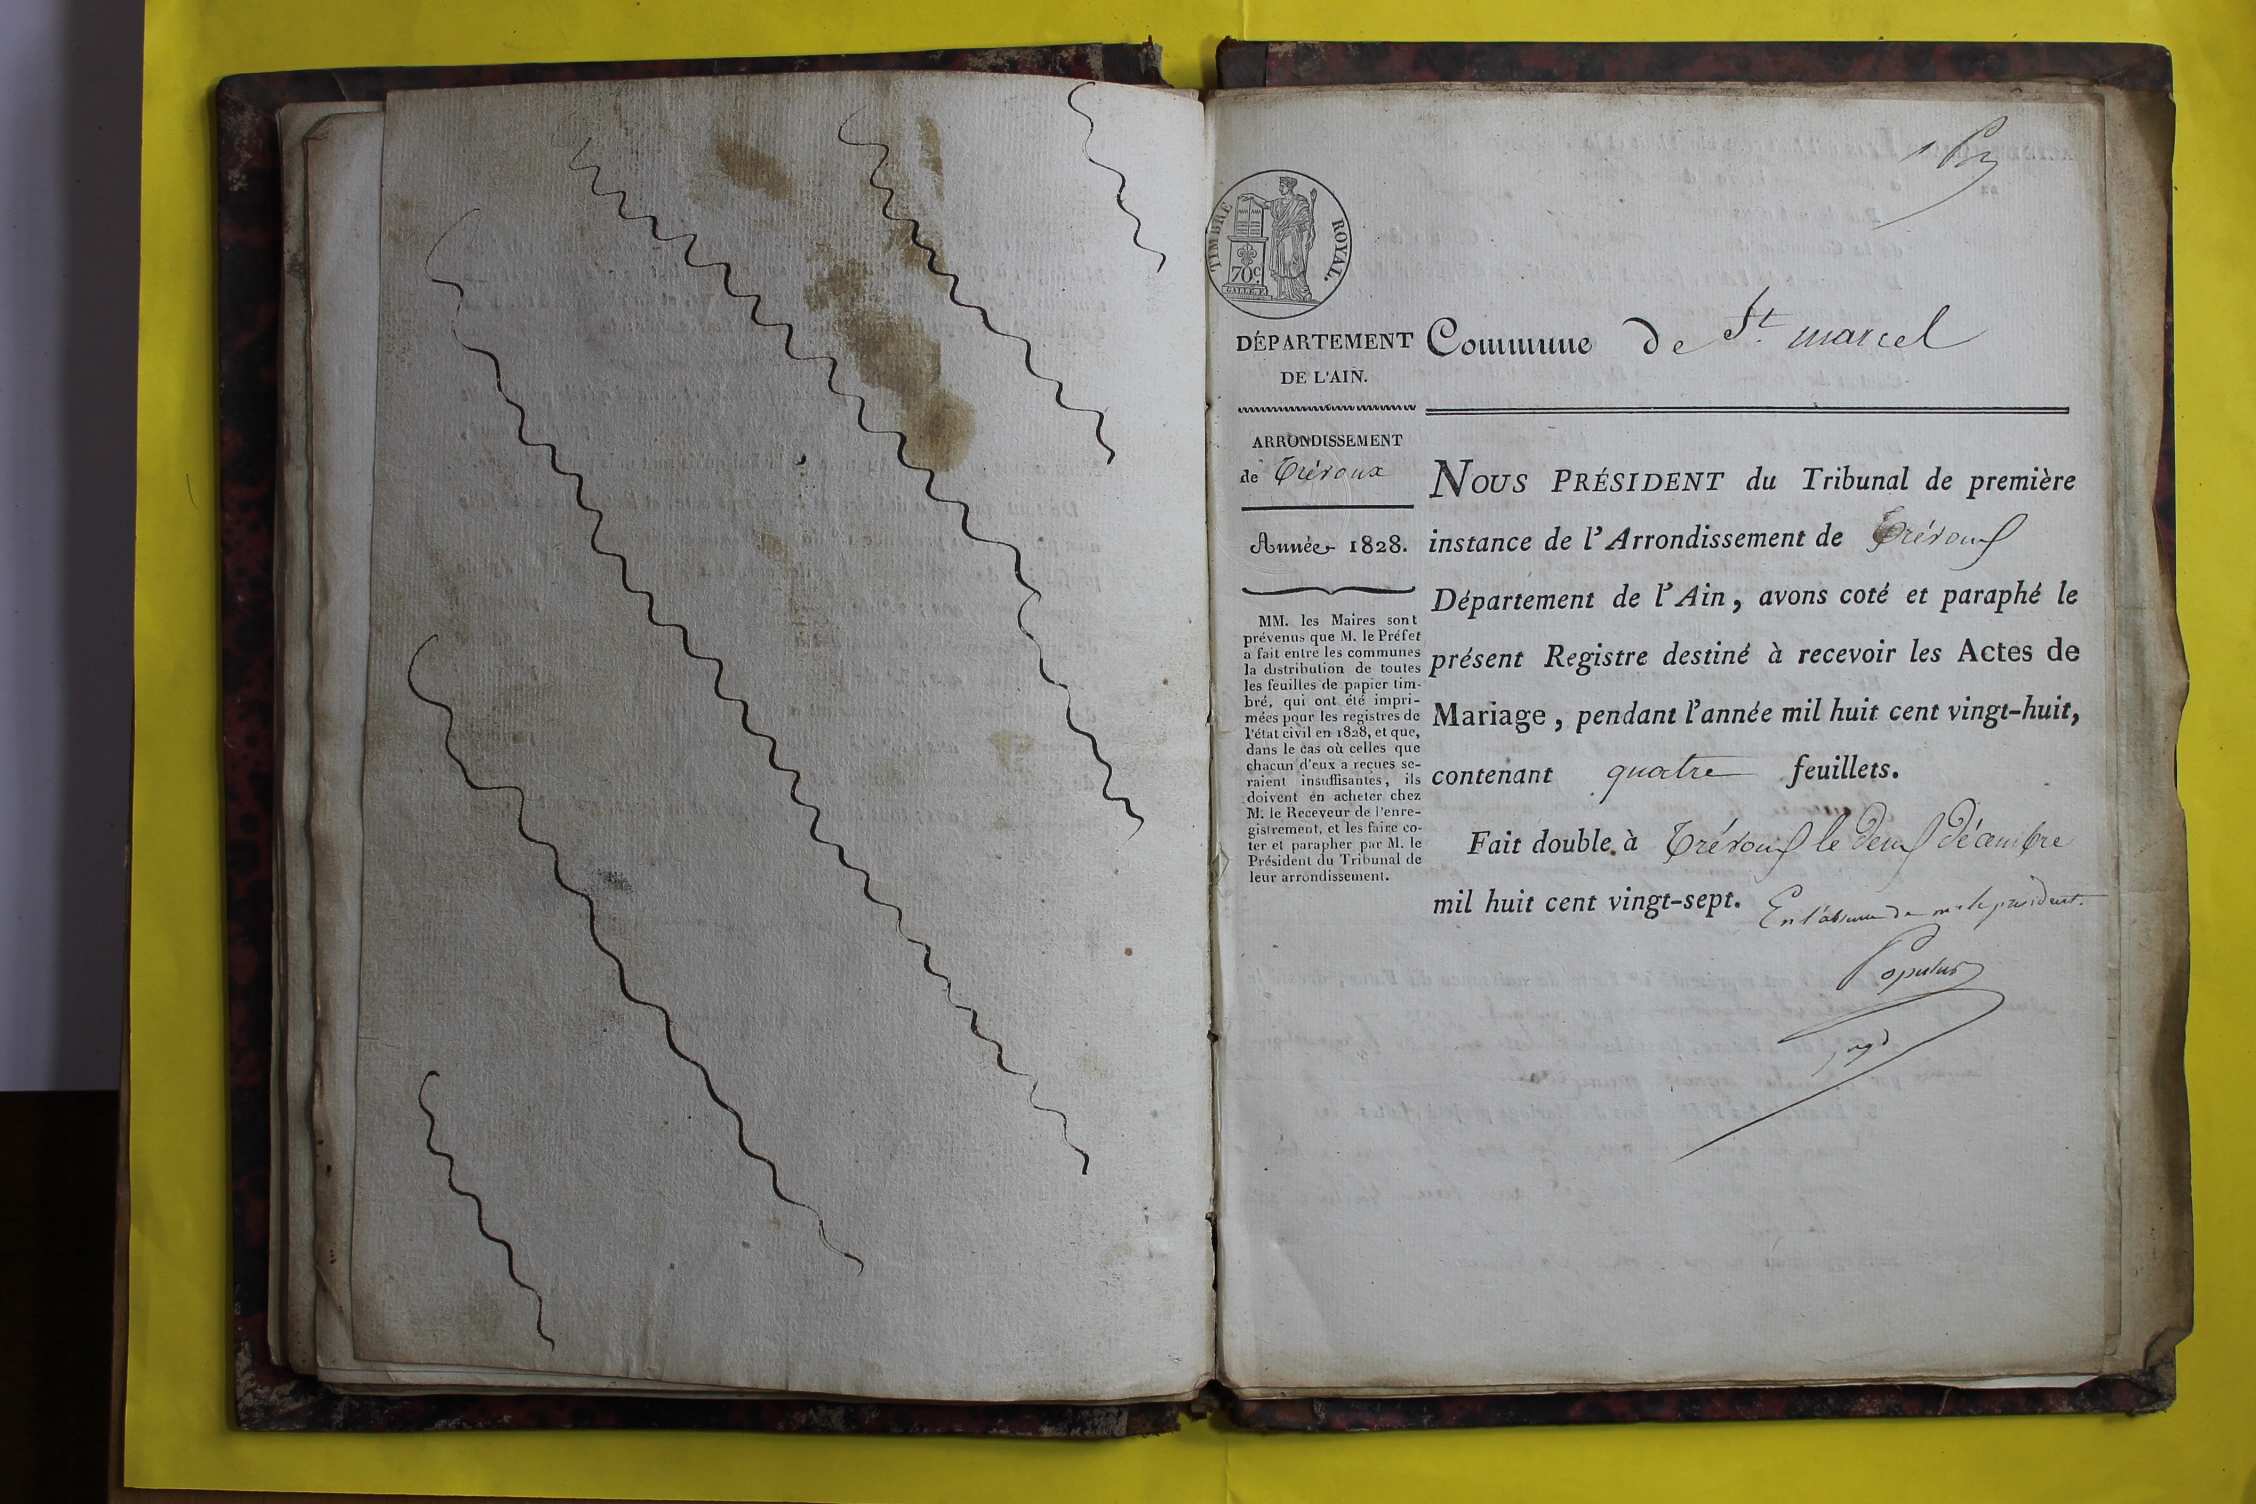 TIMBRE ROYAL.
70c
GALLE. F.
DÉPARTEMENT
DE L'AIN.
ARRONDISSEMENT
de Trévoux
Année 1828.
MM. les Maires sont
prévenus que M. le Préfet
a fait entre les communes
la distribution de toutes
les feuilles de papier tim-
bré, qui ont été impri-
mées pour les registres de
l'état civil en 1828, et que,
dans le cas où celles que
chacun d'eux a reçues se-
raient insuffisantes, ils
doivent en acheter chez
M. le Receveur de l'enre-
gistrement, et les faire co-
ter et parapher par M. le
Président du Tribunal de
leur arrondissement.
Commune de St. marcel
NOUS PRÉSIDENT du Tribunal de première
instance de l'Arrondissement de Trévoux
Département de l'Ain, avons coté et paraphé le
présent Registre destiné à recevoir les Actes de
Mariage, pendant l'année mil huit cent vingt-huit,
contenant quatre feuillets.
Fait double à Trévoux le deux décembre
mil huit cent vingt-sept. En l'absence de m. le président.
Populus
juge